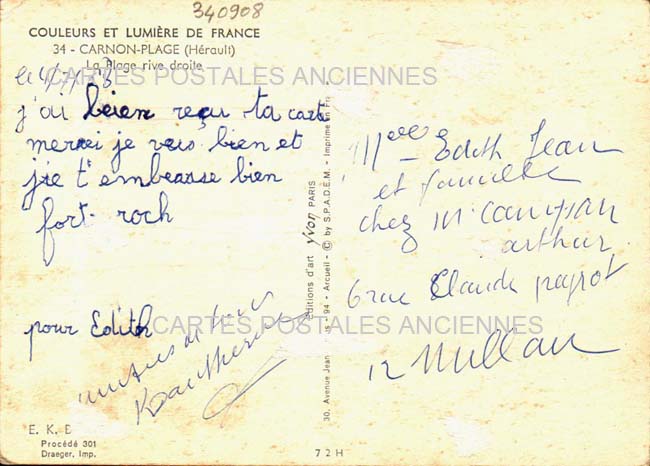 340908
COULEURS ET LUMIÈRE DE FRANCE
34 - CARNON-PLAGE (Hérault)
La Plage rive droite
CARTES POSTALES ANCIENNES
j'ai beien reçu ta carte
merci je vais bien et
je t'embrasse bien
fort. roch
pour Edith
E. K. B
Procédé 301
Draeger, Imp.
éditions d'art yvon PARIS
30, Avenue Jean - 94 - Arcueil - © by S.P.A.D.E.M. - Imprimé en Fr
72H
Melle Edith Jean
et famille
chez M
arthur
6 rue Claude peyrot
CARTES POSTALES ANCIENNES
12 Millau